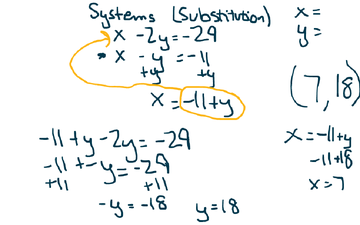 Systems (Substitution)
x - 2y = -29
x - y = -11
+y +y
x = -11+y
-11+y-2y=-29
-11 + -y = -29
+11 +11
-y = -18 y = 18
x =
y =
(7, 18)
x = -11+y
-11+18
x = 7